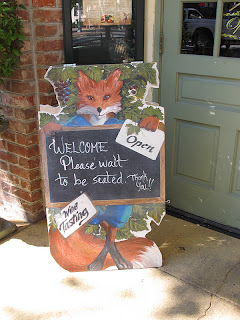 WELCOME
Please wait
to be seated.
Thank
You!!
Open
Wine
Tasting